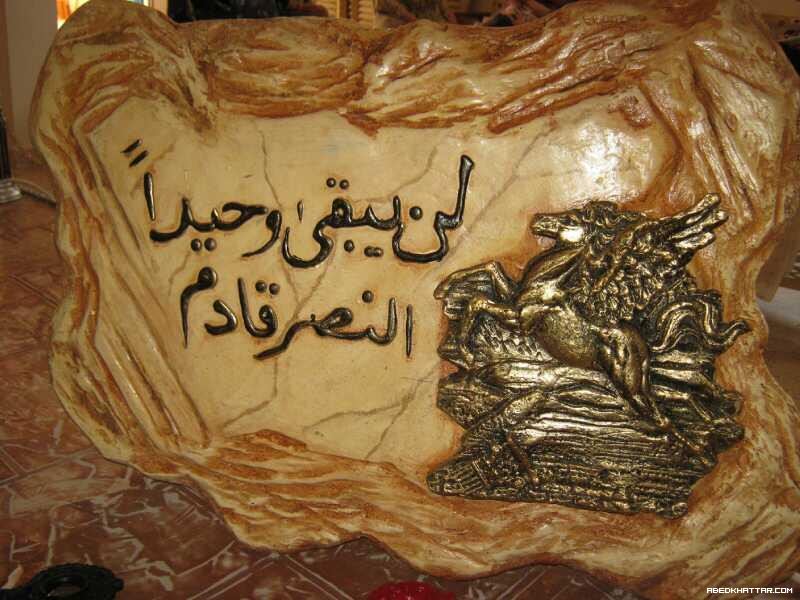 لن يبقى وحيداً
النصر قادم
ABEDKHATTAR.COM